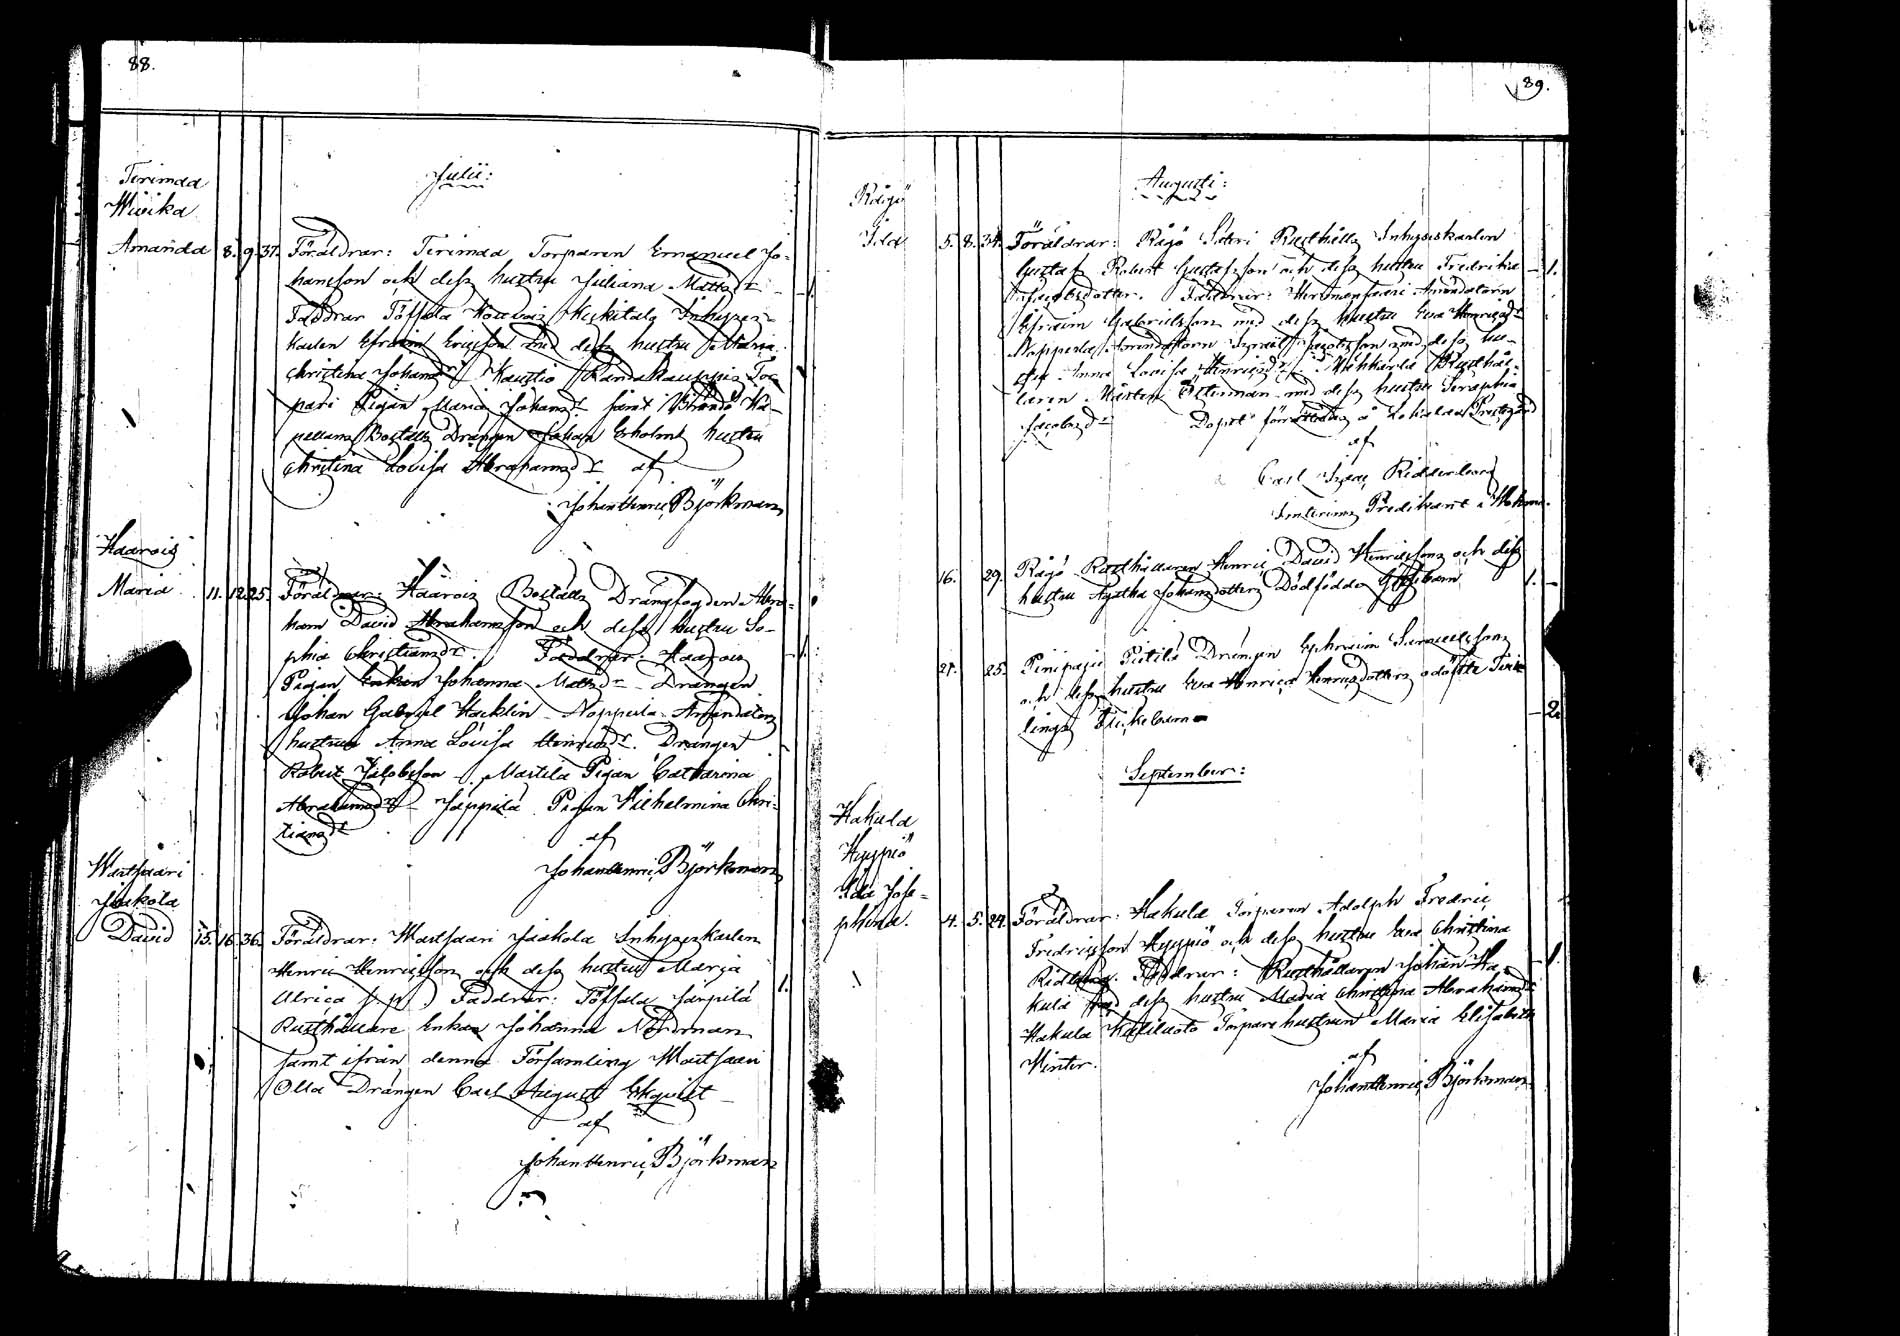 88.
Julii:
Terimaa
Wivika
Amanda 8. 9. 37. Föräldrar: Terimaa Torparen Emanuel Jo-
hansson och dess hustru Juliana Mattsdr
Faddrar Töffsala Kouvois Keskitalo Inhyses-
karlen Efraim Ericsson med dess hustru Maria
Christina Johansdr Kaustio Randakauppis Tor-
pari Pigan Maria Johansdr samt Brändö Ka-
pellans Boställs Drängen Johan Ekholms hustru
Christina Lovisa Abrahamsdr af
Johan Henric Björkman
Haarois
Maria 11. 12. 25. Föräldrar: Haarois Boställs Drängfogden Abra-
ham David Abrahamsson och dess hustru So-
phia Christiansdr. Faddrar: Haarois
Pigan Enkan Johanna Mattsdr - Drängen
Johan Gabriel Hacklin - Nopperla Arrendators
hustrun Anna Lovisa Henricsdr. Drängen
Robert Jacobsson - Mattila Pigan Catharina
Abrahamsdr - Jäppilä Pigan Wilhelmina Chri-
stiansdr
af
Johan Henric Björkman
Wartsaari
Jaakola
David 15. 16. 36. Föräldrar: Wartsaari Jaakola Inhyseskarlen
Henric Henricsson och dess hustru Maria
Ulrica Faddrar: Töffsala Järpilä
Rusthållare Enkan Johanna Nordman
samt ifrån denna Församling Wartsaari
Olla Drängen Carl August Ekqvist
af 1.
Johan Henric Björkman
89.
Augusti:
Rågö
Ida 5. 8. 34. Föräldrar: Rågö Säteri Rusthålls Inhyseskarlen
Gustaf Robert Gustafsson och dess hustru Fredrika - 1.
Jacobsdotter. Faddrar: Hermansaari Arrendatorn
Efraim Gabrielsson med dess hustru Eva Henricsdr
Nopperla Arrendatorn Israel Jacobsson med dess hu-
stru Anna Lovisa Henricsdr Wehkärlä Rusthål-
laren Mårten Österman med dess hustru Seraphia
Jacobsdr Dopet förrättades å Lokalax Prestgård
af
Carl Isac Ridderberg
Interims Predikant i Wehmo.
16. 29. Rågö Rusthållaren Henric David Henricssons och dess
hustru Agatha Johansdotters Dödfödda Gossebarn 1. -
21. 25. Pinipaju Pietilä Drängen Ephraim Samuelssons
och dess hustru Eva Henrica Henricsdotters odöpte Tvil-
lings Flickebarn - 2.
September:
Hakula
Hyypiö
Ida Jose-
phina. 4. 5. 24. Föräldrar: Hakula Torparen Adolph Fredric
Fredricsson Hyypiö och dess hustru Eva Christina
Faddrar: Rusthållaren Johan Ha- - 1.
kula med dess hustru Maria Christina Abrahamsdr
Hakula Torpare hustrun Maria Elisabeth
Winter.
af
Johan Henric Björkman